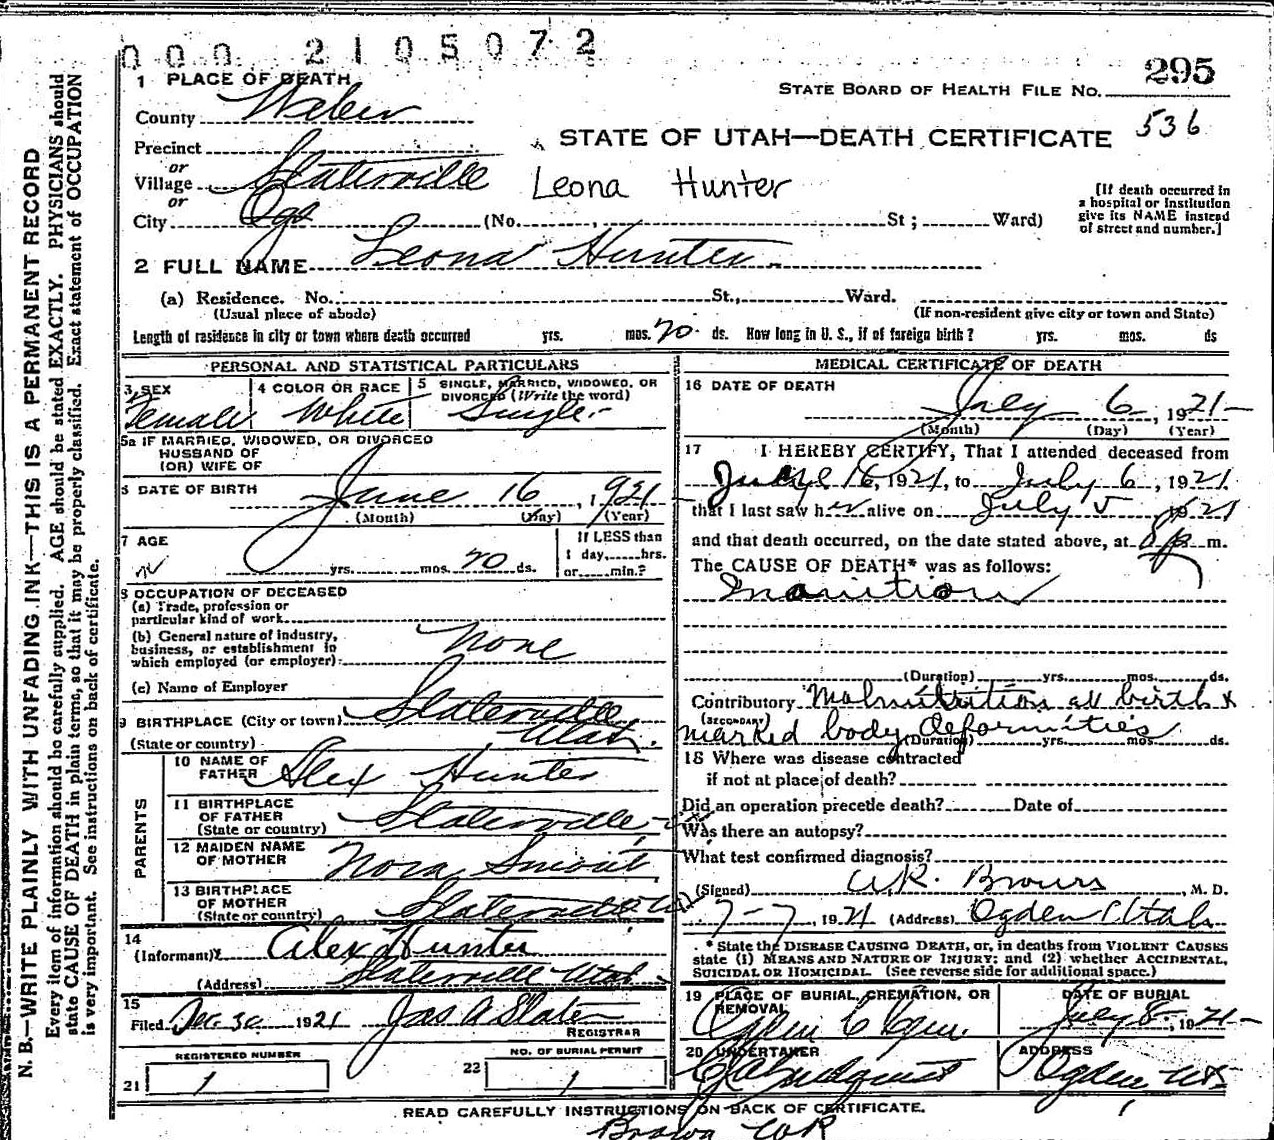 000 2105072
295
1 PLACE OF DEATH
STATE BOARD OF HEALTH FILE NO.
County Weber
536
STATE OF UTAH—DEATH CERTIFICATE
Precinct
or
Village Slaterville
Leona Hunter
[If death occurred in
a hospital or institution
give its NAME instead
of street and number.]
or
City Ogd (No. , St ; Ward)
2 FULL NAME Leona Hunter
(a) Residence. No. St., Ward.
(Usual place of abode)
(If non-resident give city or town and State)
Length of residence in city or town where death occurred yrs. mos. 20 ds. How long in U. S., if of foreign birth? yrs. mos. ds
PERSONAL AND STATISTICAL PARTICULARS
3 SEX
Female
4 COLOR OR RACE
White
5 SINGLE, MARRIED, WIDOWED, OR
DIVORCED (Write the word)
Single
5a IF MARRIED, WIDOWED, OR DIVORCED
HUSBAND OF
(OR) WIFE OF
6 DATE OF BIRTH June 16, 1921
(Month) (Day) (Year)
7 AGE
yrs. mos. 20 ds.
If LESS than
1 day, hrs.
or min.?
8 OCCUPATION OF DECEASED
(a) Trade, profession or
particular kind of work
(b) General nature of industry,
business, or establishment in
which employed (or employer) None
(c) Name of Employer
9 BIRTHPLACE (City or town) Slaterville
(State or country) Utah.
PARENTS
10 NAME OF
FATHER Alex Hunter
11 BIRTHPLACE
OF FATHER
(State or country) Slaterville
12 MAIDEN NAME
OF MOTHER Nora Smout
13 BIRTHPLACE
OF MOTHER
(State or country) Slaterville
14
(Informant) Alex Hunter
(Address) Slaterville Utah
15
Filed Dec. 30 1921 Jas A Slater
REGISTRAR
REGISTERED NUMBER
21 1
NO. OF BURIAL PERMIT
22 1
MEDICAL CERTIFICATE OF DEATH
16 DATE OF DEATH
July 6, 1921
(Month) (Day) (Year)
17 I HEREBY CERTIFY, That I attended deceased from
June 16, 1921, to July 6, 1921
that I last saw her alive on July 5 1921
and that death occurred, on the date stated above, at m.
The CAUSE OF DEATH* was as follows:
Inanition
(Duration) yrs. mos. ds.
Contributory Malnutrition at birth &
(SECONDARY)
marked body deformities
(Duration) yrs. mos. ds.
18 Where was disease contracted
if not at place of death?
Did an operation precede death? Date of
Was there an autopsy?
What test confirmed diagnosis?
(Signed) , M. D.
7-7, 1921 (Address) Ogden Utah
* State the DISEASE CAUSING DEATH, or, in deaths from VIOLENT CAUSES
state (1) MEANS AND NATURE OF INJURY; and (2) whether ACCIDENTAL,
SUICIDAL OR HOMICIDAL. (See reverse side for additional space.)
19 PLACE OF BURIAL, CREMATION, OR
REMOVAL
Ogden
DATE OF BURIAL
July 8, 1921
20 UNDERTAKER
Lindquist
ADDRESS
Ogden Ut
READ CAREFULLY INSTRUCTIONS ON BACK OF CERTIFICATE.
Brown WR
N. B.—WRITE PLAINLY WITH UNFADING INK—THIS IS A PERMANENT RECORD
Every item of information should be carefully supplied. AGE should be stated EXACTLY. PHYSICIANS should
state CAUSE OF DEATH in plain terms, so that it may be properly classified. Exact statement of OCCUPATION
is very important. See instructions on back of certificate.